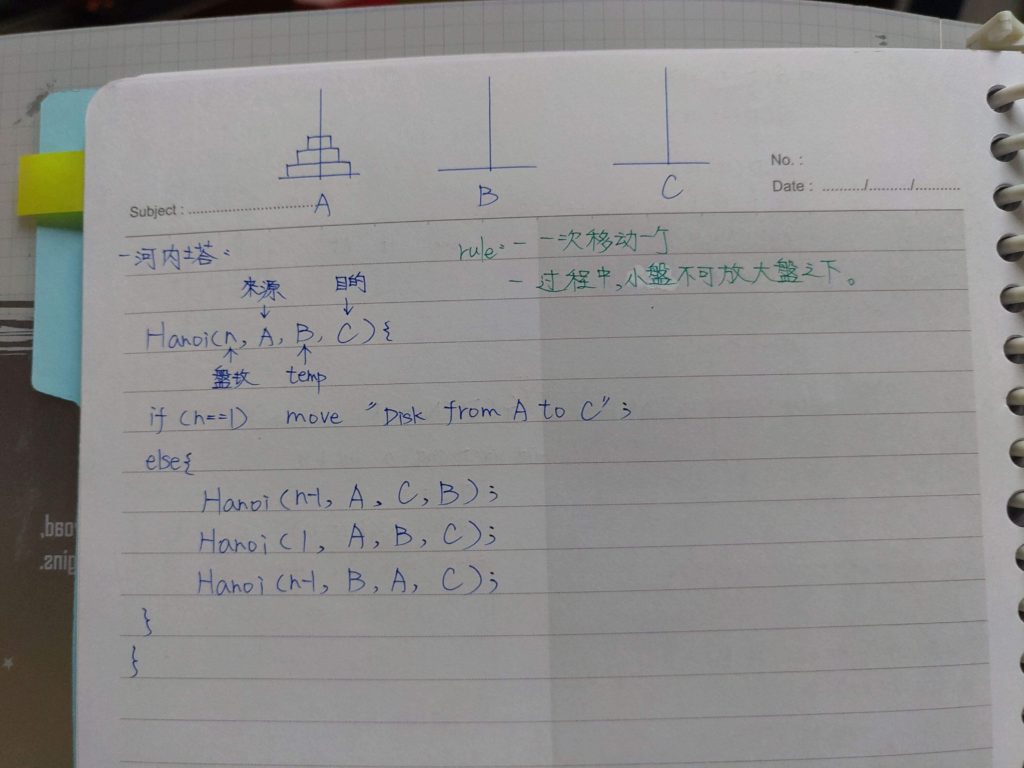 A B C
No. :
Date : ........../........../..........
Subject : ..............................
-河内塔:
rule: - 一次移动一个
- 过程中,小盤不可放大盤之下。
来源 目的
Hanoi(n, A, B, C){
盤数 temp
if (n==1) move "Disk from A to C";
else{
Hanoi(n-1, A, C, B);
Hanoi(1, A, B, C);
Hanoi(n-1, B, A, C);
}
}